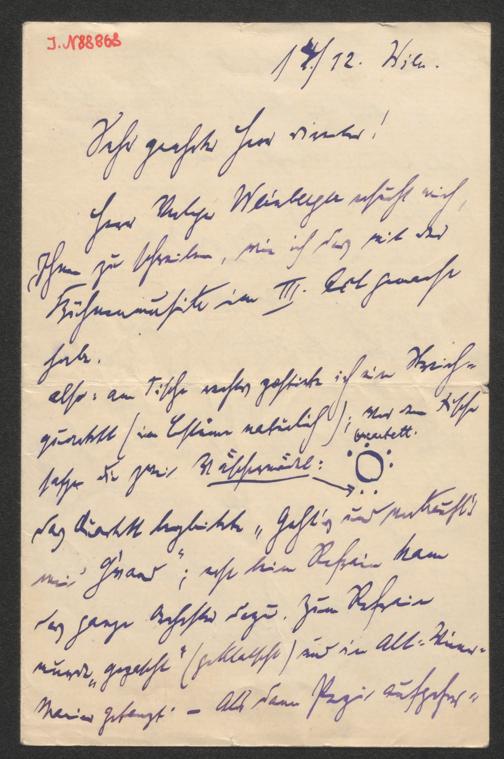 J.N 88868
14/12. Wien.
Sehr geehrter Herr Direktor!
Herr Verleger Weinberger ersucht mich,
Ihnen zu schreiben, wie ich das mit der
Bühnenmusik im III. Act gemacht
habe.
also: am Tische rechts postierte ich ein Streich-
quartett (im Costüme natürlich); vor dem Tische
Quartett.
sassen die zwei Wäschermädel:
das Quartett begleitete „Geht's und verkauft's
mei' G'wand"; erst beim Refrain kam
das ganze Orchester dazu. Zum Refrain
wurde „gepascht" (geklatscht) und in Alt-Wiener-
Manier getanzt. – Als dann